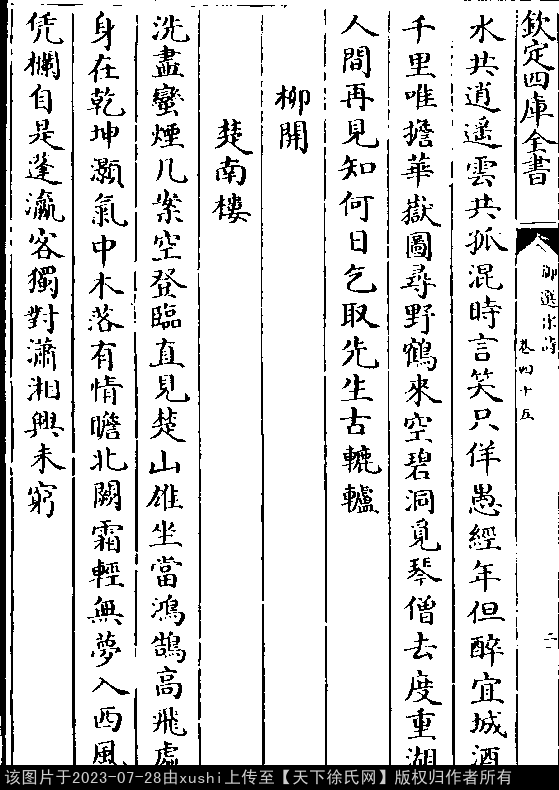 欽定四庫全書
御選宋詩
卷四十五
二
水共逍遙雲共孤混時言笑只佯愚經年但醉宜城酒
千里唯擔華嶽圖尋野鶴來空碧洞覓琴僧去度重湖
人間再見知何日乞取先生古轆轤
柳開
楚南樓
洗盡蠻煙几案空登臨直見楚山雄坐當鴻鵠高飛處
身在乾坤灝氣中木落有情瞻北闕霜輕無夢入西風
凭欄自是蓬瀛客獨對瀟湘興未窮
该图片于2023-07-28由xushi上传至【天下徐氏网】版权归作者所有